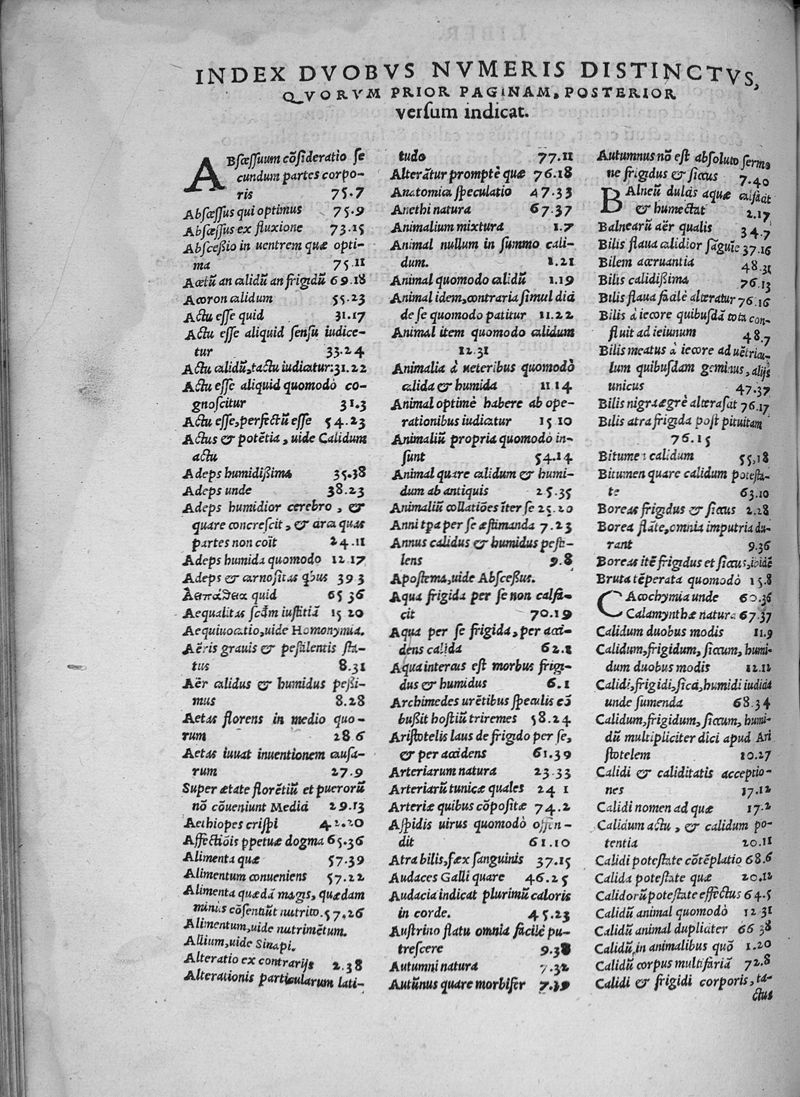 INDEX DVOBVS NVMERIS DISTINCTVS,
QVORVM PRIOR PAGINAM, POSTERIOR
versum indicat.
ABscessuum cõsideratio se
cundum partes corpo-
ris 75.7
Abscessus qui optimus 75.9
Abscessus ex fluxione 73.15
Abscessio in uentrem quæ opti-
ma 75.11
Acetũ an calidũ an frigidũ 69.18
Acoron calidum 55.23
Actu esse quid 31.17
Actu esse aliquid sensu iudice-
tur 33.24
Actu calidũ, tactu iudicatur: 31.22
Actu esse aliquid quomodò co-
gnoscitur 31.3
Actu esse, perfectũ esse 54.23
Actus & potẽtia, uide Calidum
actu
Adeps humidißima 35.38
Adeps unde 38.23
Adeps humidior cerebro, &
quare concrescit, & circa quas
partes non coit 24.11
Adeps humida quomodo 12.17
Adeps & carnositas qbus 39 3
quid 65 36
Aequalitas secdm iustitiã 15 20
Aequiuocatio, uide Homonymia.
Aëris grauis & pestilentis sta-
tus 8.31
Aër calidus & humidus peßi-
mus 8.28
Aetas florens in medio quo-
rum 28 6
Aetas iuuat inuentionem causa-
rum 27.9
Super ætate florẽtiũ et puerorũ
nõ cõueniunt Medici 29.13
Aethiopes crispi 42.20
Affectiõis ppetuæ dogma 65.36
Alimenta quæ 57.39
Alimentum conueniens 57.22
Alimenta quædã magis, quædam
minus cõsentiũt nutrito. 57.26
Alimentum, uide nutrimẽtum.
Allium, uide Sinapi.
Alteratio ex contrarijs 2.38
Alterationis particularum lati-
tudo 77.11
Alterãtur promptè quæ 76.18
Anatomica speculatio 47.33
Anethi natura 67.37
Animalium mixtura 1.7
Animal nullum in summo cali-
dum. 1.21
Animal quomodo calidũ 1.19
Animal idem, contraria simul dici
de se quomodo patitur 11.22
Animal item quomodo calidum
12.31
Animalia à ueteribus quomodò
calida & humida 11 14
Animal optimè habere ab ope-
rationibus iudicatur 15 10
Animaliũ propria quomodò in-
sunt 54.14
Animal quare calidum & humi-
dum ab antiquis 25.35
Animaliũ collatiões īter se 25.20
Anni tpa per se æstimanda 7.23
Annus calidus & humidus pesti-
lens 9.8
Apostema, uide Abscessus.
Aqua frigida per se non calfa-
cit 70.19
Aqua per se frigida, per acci-
dens calida 62.1
Aqua intercus est morbus frigi-
dus & humidus 6.1
Archimedes urẽtibus speculis cõ
bußit hostiũ triremes 58.24
Aristotelis laus de frigido per se,
& per accidens 61.39
Arteriarum natura 23.33
Arteriarũ tunicæ quales 24 1
Arteriæ quibus cõpositæ 74.2
Aspidis uirus quomodò offen-
dit 61.10
Atra bilis, fæx sanguinis 37.15
Audaces Galli quare 46.25
Audacia indicat plurimũ caloris
in corde. 45.23
Austrino flatu omnia facilè pu-
trescere 9.38
Autumni natura 7.32
Autũnus quare morbifer 7.39
Autumnus nõ est absoluto sermo
ne frigidus & siccus 7.40
BAlneũ dulcis aquæ calfacit
& humectat 2.17
Balnearũ aër qualis 34.7
Bilis flaua calidior sãguīe 37.16
Bilem aceruantia 48.31
Bilis calidißima 76.13
Bilis flaua facilè alteratur 76.16
Bilis à iecore quibusdã tota con-
fluit ad ieiunum 48.7
Bilis meatus à iecore ad uẽtricu-
lum quibusdam geminus, alijs
unicus 47.37
Bilis nigra ægrè alterascit 76.17
Bilis atra frigida post pituitam
76.15
Bitumen calidum 55,18
Bitumen quare calidum potesta-
te 63.10
Boreas frigidus & siccus 2.28
Borea flãte, omnia imputria du-
rant 9.36
Boreas itẽ frigidus et siccus, ibidẽ
Bruta tẽperata quomodò 15.8
CAcochymia unde 60.36
Calamynthæ natura 67.37
Calidum duobus modis 11.9
Calidum, frigidum, siccum, humi-
dum duobus modis 12.12
Calidi, frigidi, sicci, humidi iudicia
unde sumenda 68.34
Calidum, frigidum, siccum, humi-
dũ multipliciter dici apud Ari
stotelem 10.27
Calidi & caliditatis acceptio-
nes 17.12
Calidi nomen ad quæ 17.2
Calidum actu, & calidum po-
tentia 20.11
Calidi potestate cõtẽplatio 68.6
Calida potestate quæ 20.12
Calidorũ potestate effectus 64.5
Calidũ animal quomodò 12 31
Calidũ animal dupliciter 66 38
Calidũ, in animalibus quõ 1.20
Calidũ corpus multifariã 72.8
Calidi & frigidi corporis, ta-
ctus